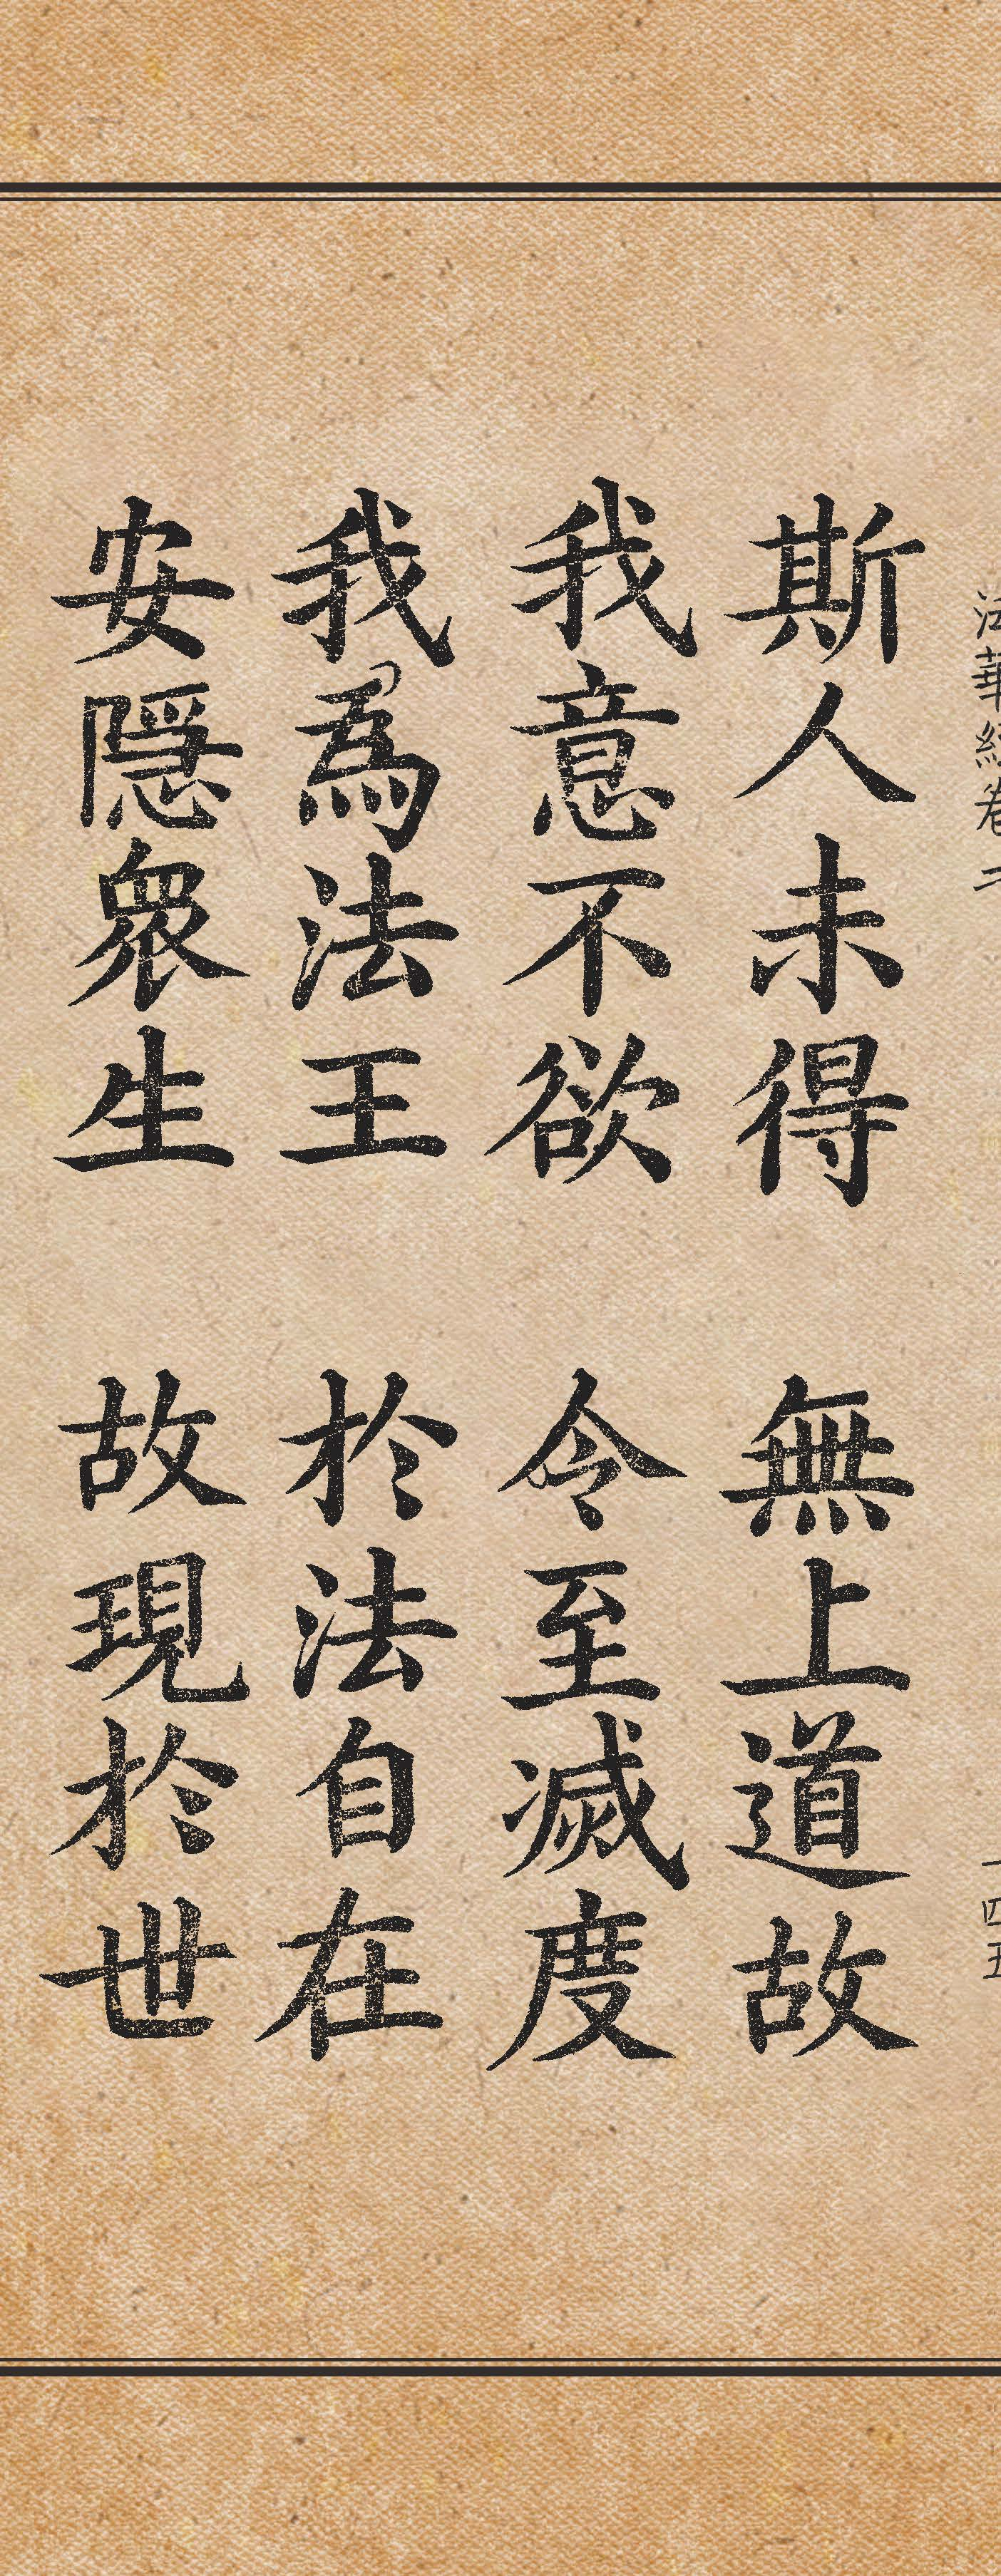 法華經卷二
一四五
斯人未得 無上道故
我意不欲 令至滅度
我為法王 於法自在
安隱眾生 故現於世